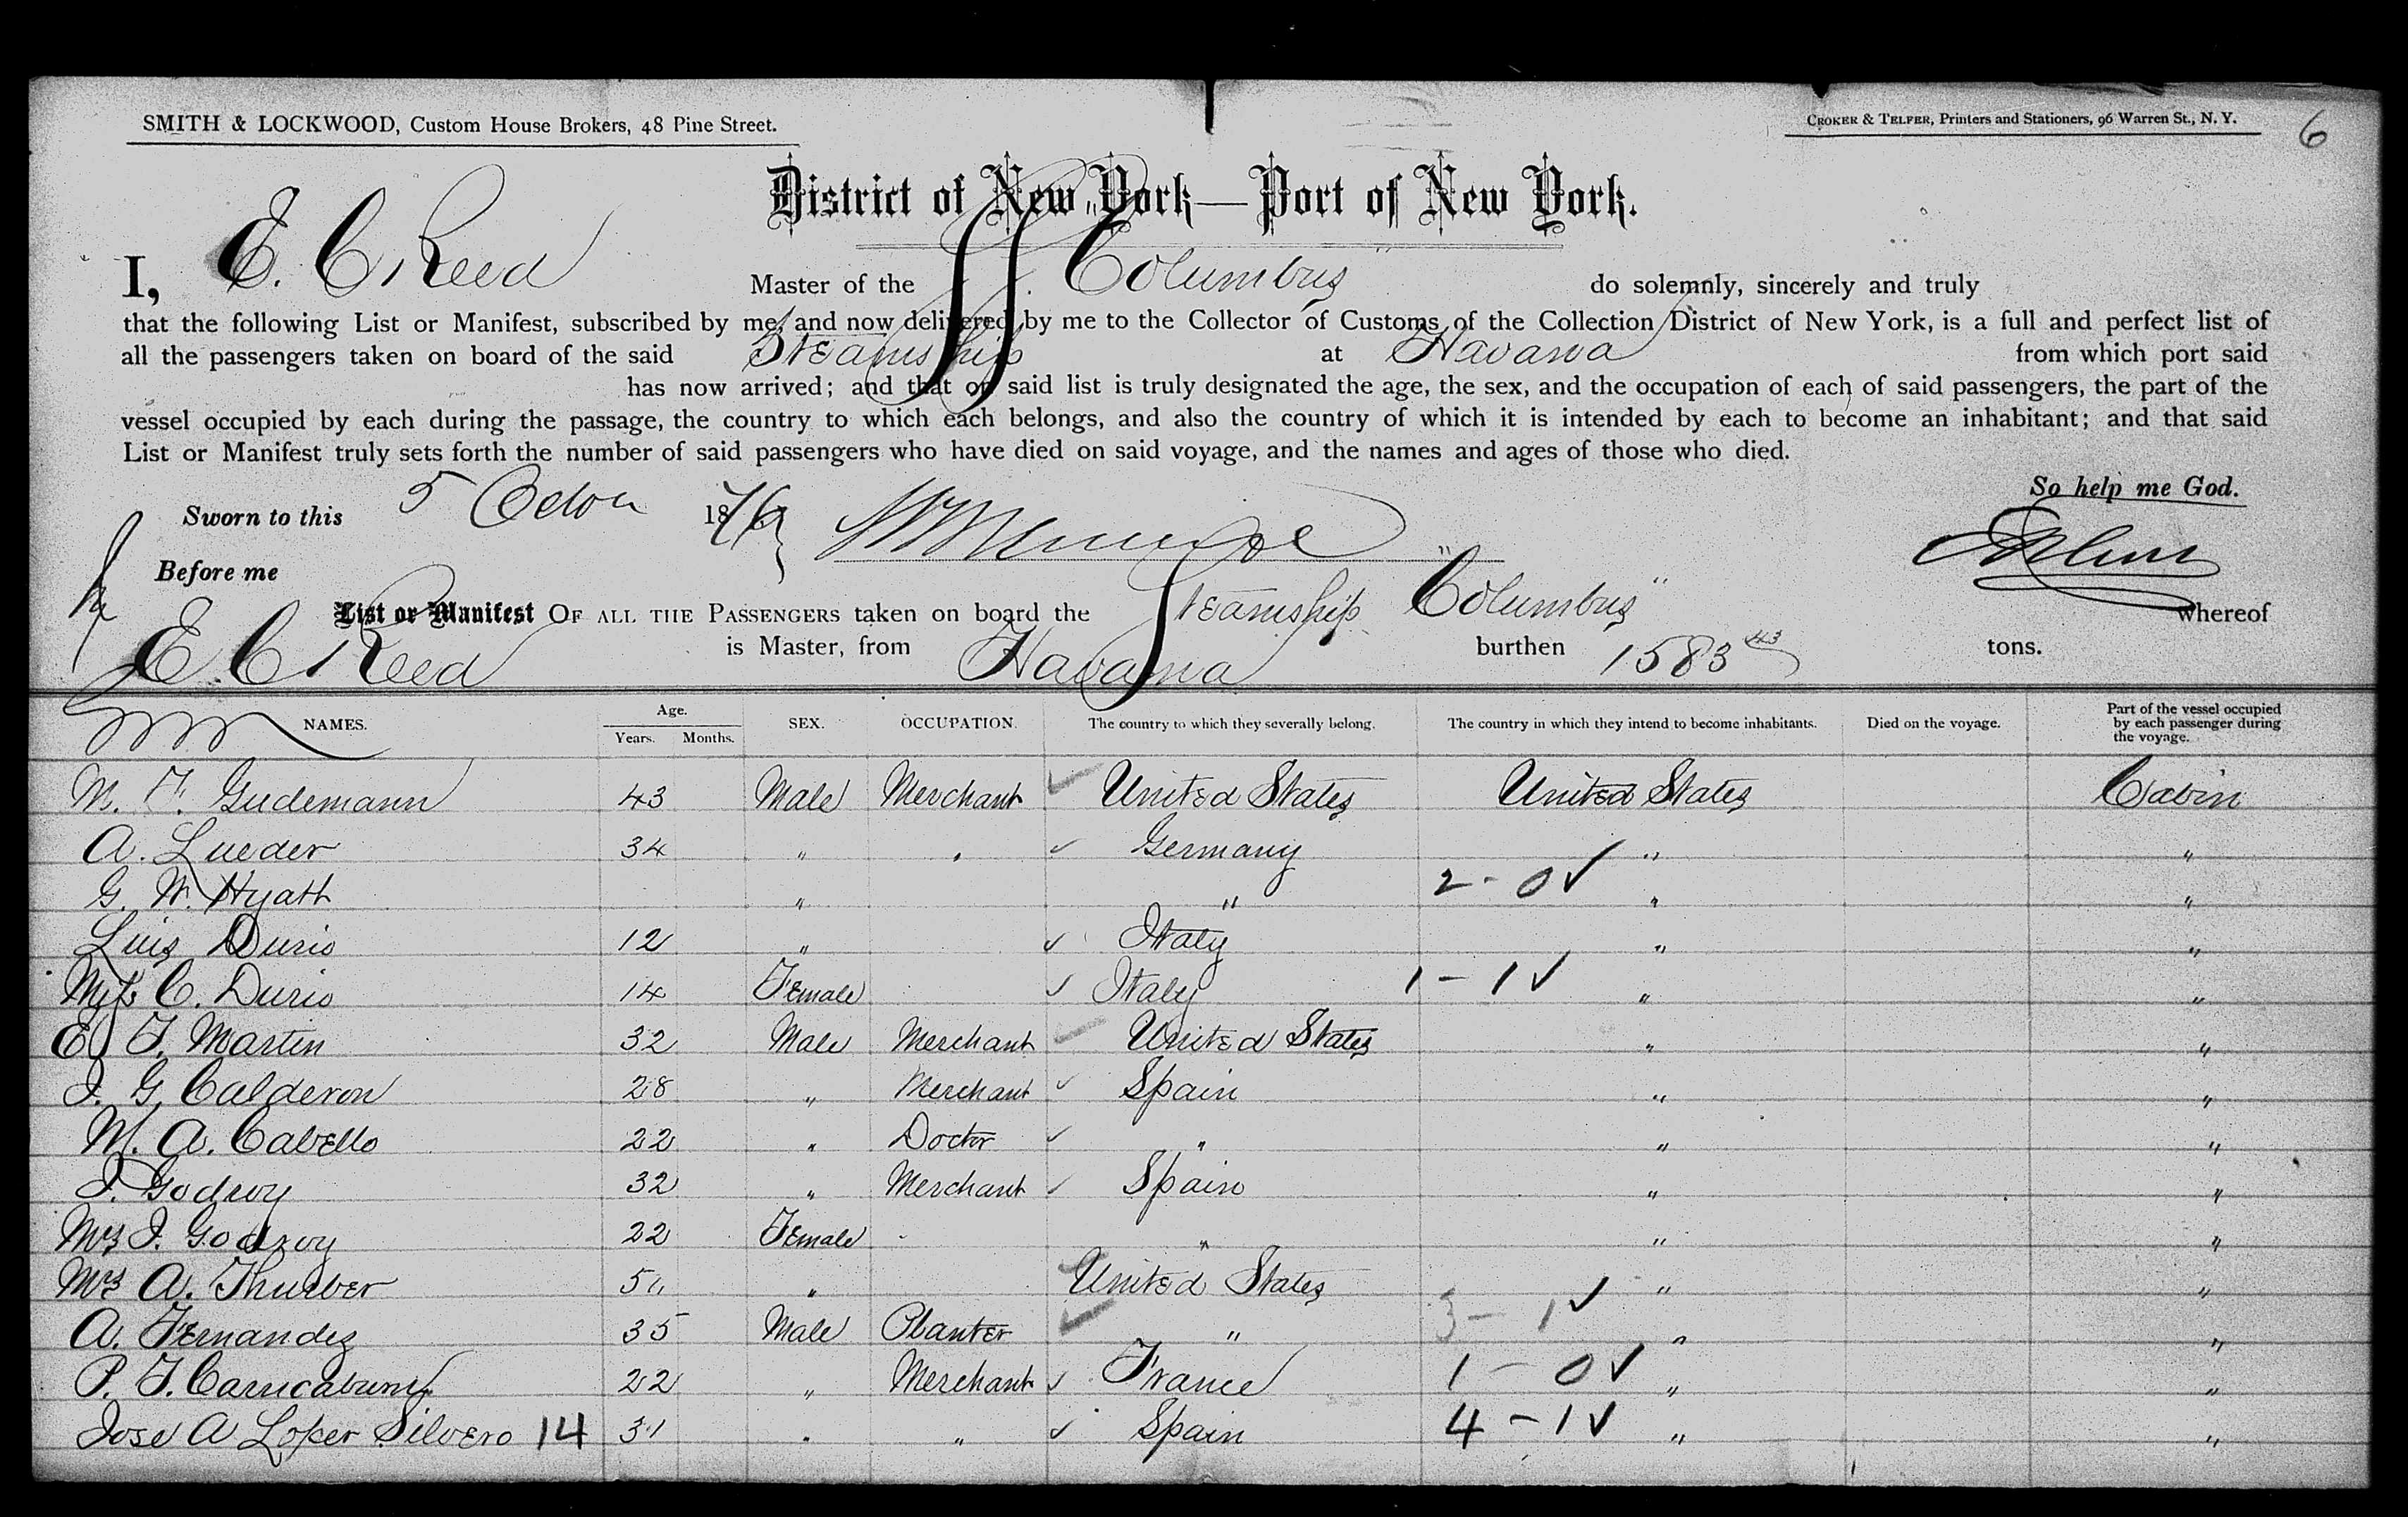 SMITH & LOCKWOOD, Custom House Brokers, 48 Pine Street.
CROKER & TELFER, Printers and Stationers, 96 Warren St., N. Y.
6
District of New York—Port of New York.
I, E. C. Reed Master of the SS. "Columbus" do solemnly, sincerely and truly
that the following List or Manifest, subscribed by me, and now delivered by me to the Collector of Customs of the Collection District of New York, is a full and perfect list of
all the passengers taken on board of the said Steamship at Havana from which port said
has now arrived; and that on said list is truly designated the age, the sex, and the occupation of each of said passengers, the part of the
vessel occupied by each during the passage, the country to which each belongs, and also the country of which it is intended by each to become an inhabitant; and that said
List or Manifest truly sets forth the number of said passengers who have died on said voyage, and the names and ages of those who died.
So help me God.
Sworn to this 5 1876
Before me
List or Manifest OF ALL THE PASSENGERS taken on board the Steamship "Columbus" whereof
E. C. Reed is Master, from Havana burthen 1583 43 tons.
NAMES. Age. Years. Months. SEX. OCCUPATION. The country to which they severally belong. The country in which they intend to become inhabitants. Died on the voyage. Part of the vessel occupied by each passenger during the voyage.
M. F. Gudemann 43 Male Merchant ✓ United States United States Cabin
A. Lueder 34 " " ✓ Germany " "
G. W. Hyath " " 2 - 0 ✓ " "
Luis Duris 12 " ✓ Italy " "
Miss C. Duris 14 Female ✓ Italy 1 - 1 ✓ " "
E. F. Martin 32 Male Merchant ✓ United States " "
J. G. Calderon 28 " Merchant ✓ Spain " "
M. A. Cabello 22 " Doctor ✓ " " "
J. Godroy 32 " Merchant ✓ Spain " "
Mrs J. Godroy 22 Female " " "
Mrs A. Thurber " United States " "
A. Fernandez 35 Male Planter ✓ " 3 - 1 ✓ " "
P. F. 22 " Merchant ✓ France 1 - 0 ✓ " "
Jose A Loper Silvero 14 31 " " ✓ Spain 4 - 1 ✓ " "